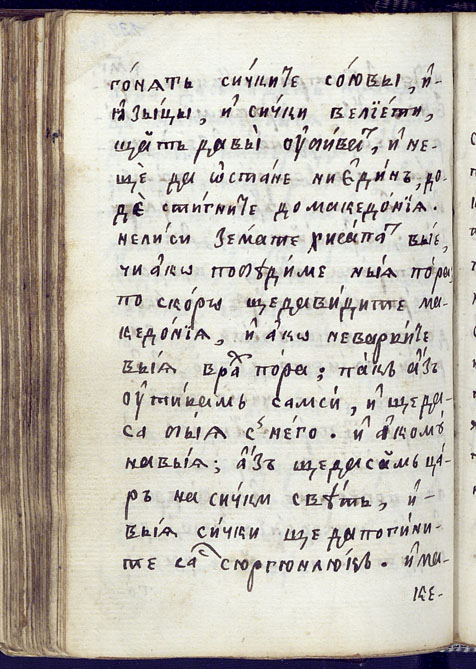 гѡ́нать си́чките сою́зы, и҆-
ꙗ҆зы́цы, и҆ си́чки велїе́ти,
ща́ть давы̀ ᲂу҆ти́ваⷮ, и҆ не-
щѐ да ѡ҆ста́не ни є҆ди́нъ, до-
дѐ сти́гните до македо́нїѧ.
не ли си земате хиса́паⷮ вы́е,
чи а҆ко погꙋ́диме ны́ѧ по́ра,
по ско́рѡ ще да ви́дите ма-
кедо́нїѧ, и҆ а҆ко не варките
вы́ѧ враⷮ по́ра; па́къ а҆́зъ
ᲂу҆ти́вамь самси́, и҆ ще да-
са бїѧ с него. и҆ а҆комꙋ̀
навїѧ; а҆́зъ ще да са́мь ца́-
ръ на си́чки свѣтъ, и҆-
вы́ѧ си́чки ще да поги́ни-
те саⷭ сюргюнлю́къ. и҆ ма-
ке-